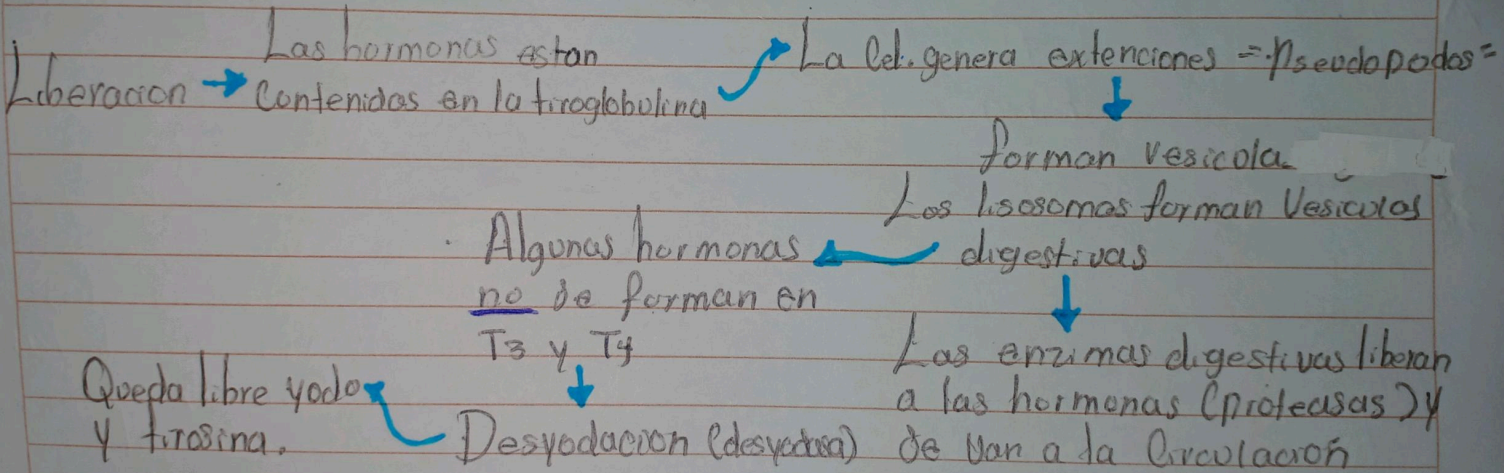 Liberacion → Las hormonas estan
contenidas en la tiroglobulina
La Cel. genera extenciones = pseudopodos =
forman vesicola
Los lisosomas forman Vesiculas
digestivas
Las enzimas digestivas liberan
a las hormonas (proteasas) y
se van a la Circulación
Algunas hormonas
no se forman en
T3 y T4
Desyodacion (desyodasa)
Queda libre yodo
y tirosina.